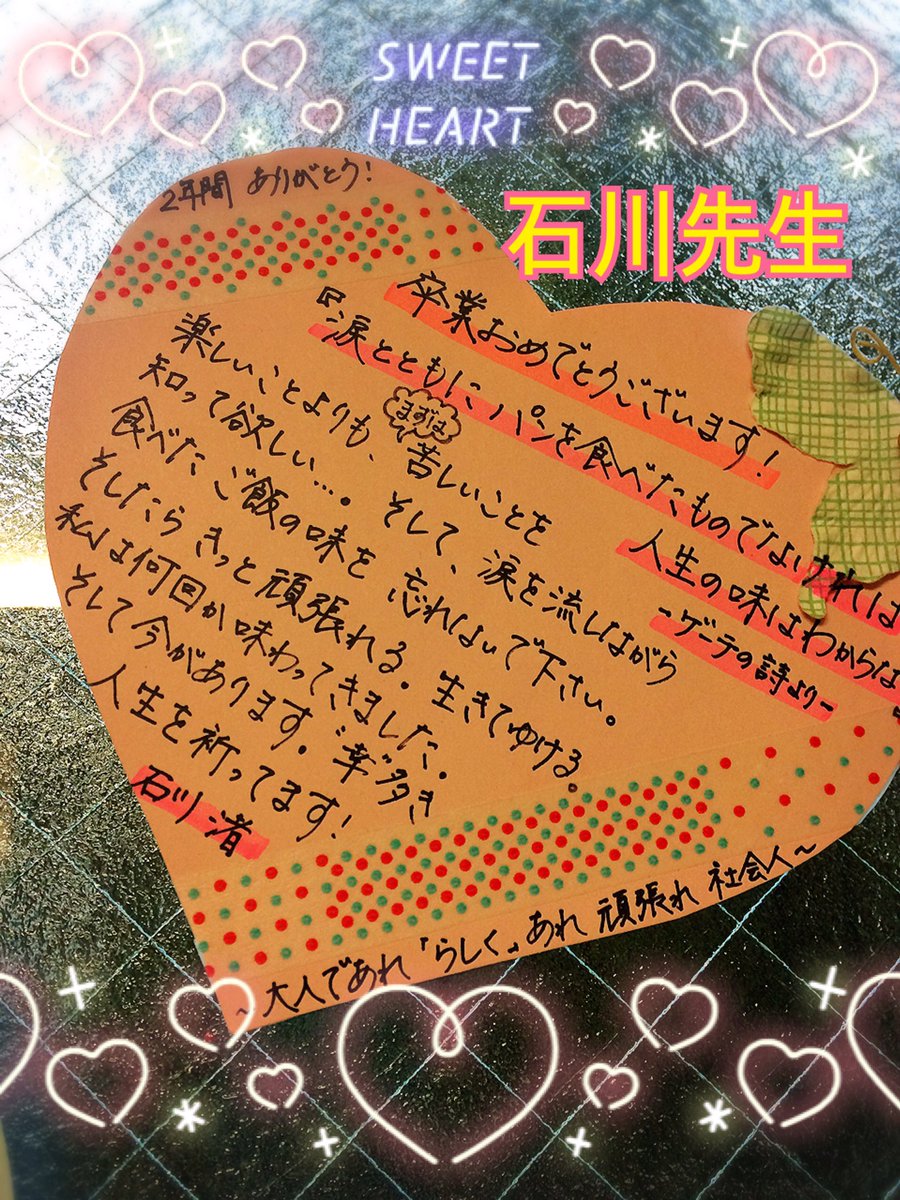 SWEET
HEART
石川先生
2年間 ありがとう!
卒業おめでとうございます!
『涙とともにパンを食べたものでなければ
人生の味はわからな
-ゲーテの詩より-
楽しいことよりも、まずは苦しいことを
知って欲しい…。そして、涙を流しながら
食べたご飯の味を忘れないで下さい。
そしたらきっと頑張れる。生きてゆける。
私は何回か味わってきました。
そして今があります。幸多き
人生を祈ってます!
石川渚
~大人であれ「らしく」あれ 頑張れ 社会人~